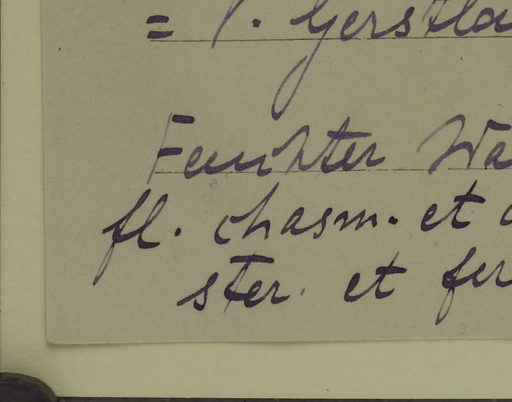 = V. Gerstla
Feuchter Wa
fl. chasm. et
ster. et fer